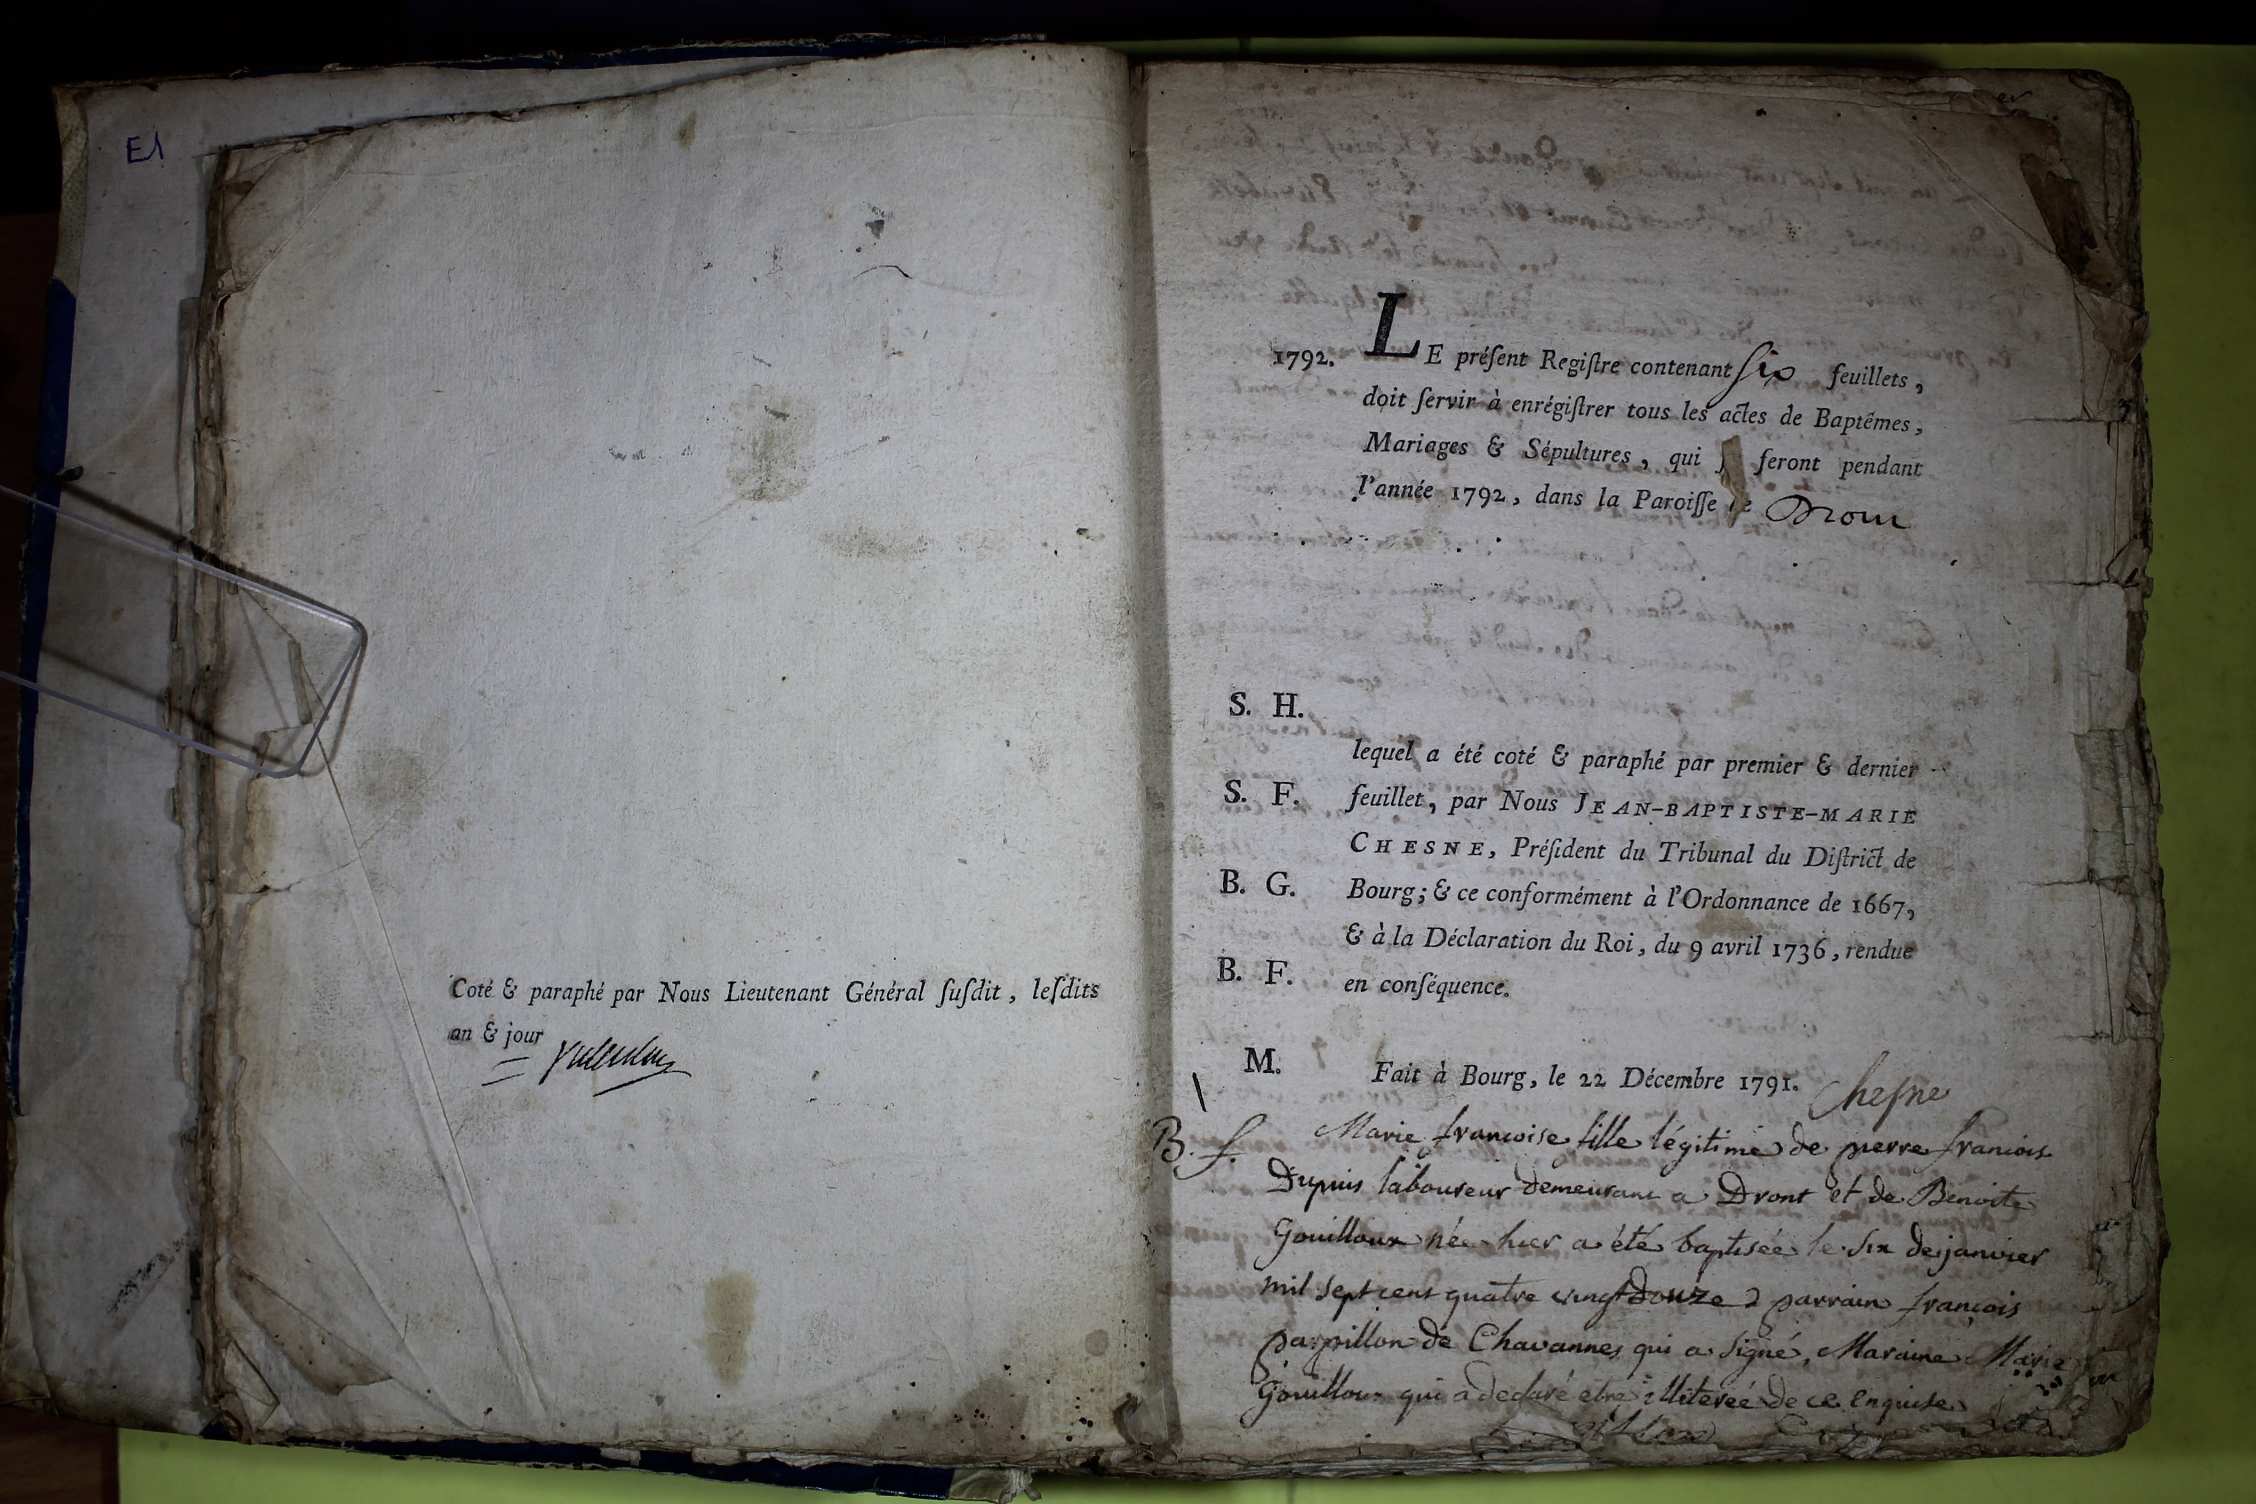 E1
Coté & paraphé par Nous Lieutenant Général ſuſdit, leſdits
an & jour
1792. LE préſent Regiſtre contenant ſix feuillets,
doit ſervir à enrégiſtrer tous les actes de Baptêmes,
Mariages & Sépultures, qui ſeront pendant
l'année 1792, dans la Paroiſſe de Drom
S. H.
lequel a été coté & paraphé par premier & dernier
S. F. feuillet, par Nous JEAN-BAPTISTE-MARIE
CHESNE, Préſident du Tribunal du Diſtrict de
B. G. Bourg; & ce conformément à l'Ordonnance de 1667,
& à la Déclaration du Roi, du 9 avril 1736, rendue
B. F. en conſéquence.
M. Fait à Bourg, le 22 Décembre 1791. Cheſne
1
B. f. Marie françoise fille légitime de pierre francois
Dupuis laboureur demeurant a Dront et de Benoite
Gouilloux née hier a été baptisée le six de janvier
mil sept cent quatre vingt douze parrain françois
parpillon de Chavannes qui a signé, Maraine Marie
Gouilloux qui a declaré etre illiterée de ce enquise